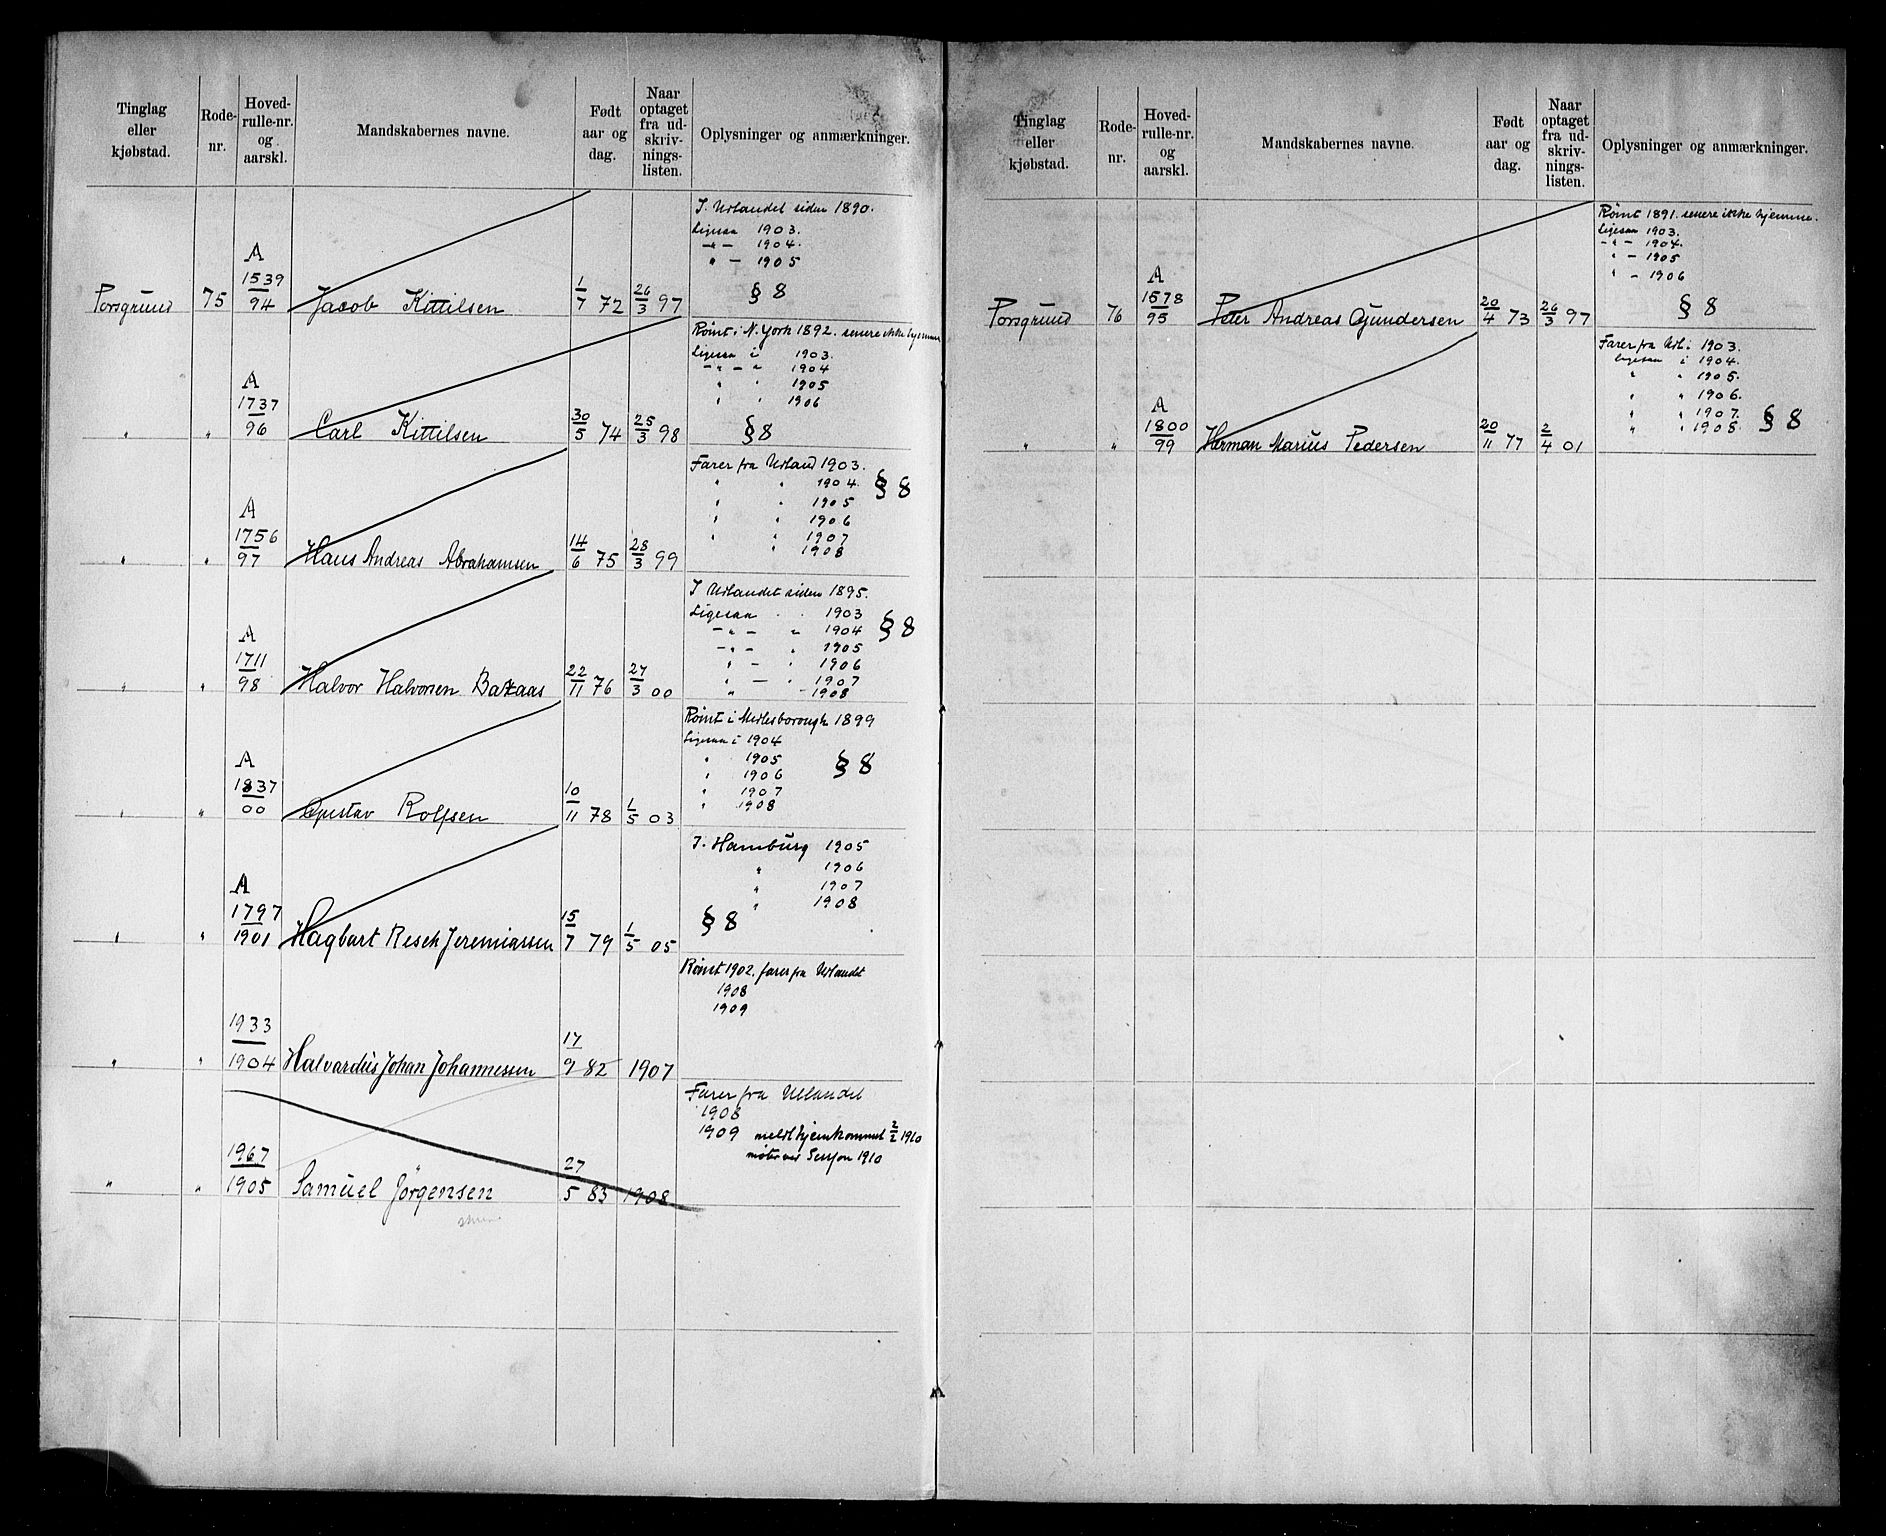 Tinglag
eller
kjøbstad.
Rode-
nr.
Hoved-
rulle-nr.
og
aarskl.
Mandskabernes navne.
Født
aar og
dag.
Naar
optaget
fra ud-
skriv-
nings-
listen.
Oplysninger og anmærkninger.
I Udlandet siden 1890.
Ligesaa 1903.
-"- 1904.
" - 1905
§ 8
A
Porsgrund 75 1539/94 Jacob Kittilsen 1/7 72 26/3 97
Rømt i N. York 1892. senere ikke hjemme
Ligesaa i 1903.
-"- " 1904
" " 1905
" " 1906
§8
A
" " 1737/96 Carl Kittilsen 30/5 74 25/3 98
Farer fra Udland 1903.
" " 1904. § 8
" " 1905
" " 1906
" " 1907
" 1908
A
" " 1756/97 Hans Andreas Abrahamsen 14/6 75 28/3 99
I Udlandet siden 1895.
Ligesaa " " 1903
-"- " 1904 § 8
-"- " 1905
" - " 1906
" - " 1907
" - 1908
A
" " 1711/98 Halvor Halvorsen 22/11 76 27/3 00
Rømt i Midlesborough 1899
Ligesaa i 1904
" 1905 § 8
" 1906
" 1907
" 1908
A
" " 1837/00 Gustav Rolfsen 10/11 78 1/5 03
I. Hamburg 1905
" 1906
" 1907
" 1908
§ 8
A
" " 1797/1901 Hagbart Resch Jeremiassen 15/7 79 1/5 05
Rømt 1902. farer fra Udlandet
1908
1909
" " 1933/1904 Halvardus Johan Johannessen 17/9 82 1907
Farer fra Udlandet
1908
1909 meldt hjemkommet 2/2 1910
møter ved Sesjon 1910
" " 1967/1905 Samuel Jörgensen 27/5 83 1908
Tinglag
eller
kjøbstad.
Rode-
nr.
Hoved-
rulle-nr.
og
aarskl.
Mandskabernes navne.
Født
aar og
dag.
Naar
optaget
fra ud-
skriv-
nings-
listen.
Oplysninger og anmærkninger.
Rømt 1891. senere ikke hjemme.
Ligesaa 1903.
-"- 1904.
" - 1905
" - 1906
§ 8
A
Porsgrund 76 1578/95 Peter Andreas Gundersen 20/4 73 26/3 97
Farer fra Udl. i 1903.
Ligesaa i 1904.
" " 1905.
" " 1906.
" " 1907. § 8
" " 1908.
A
" " 1800/99 Herman Marius Pedersen 20/11 77 2/4 01